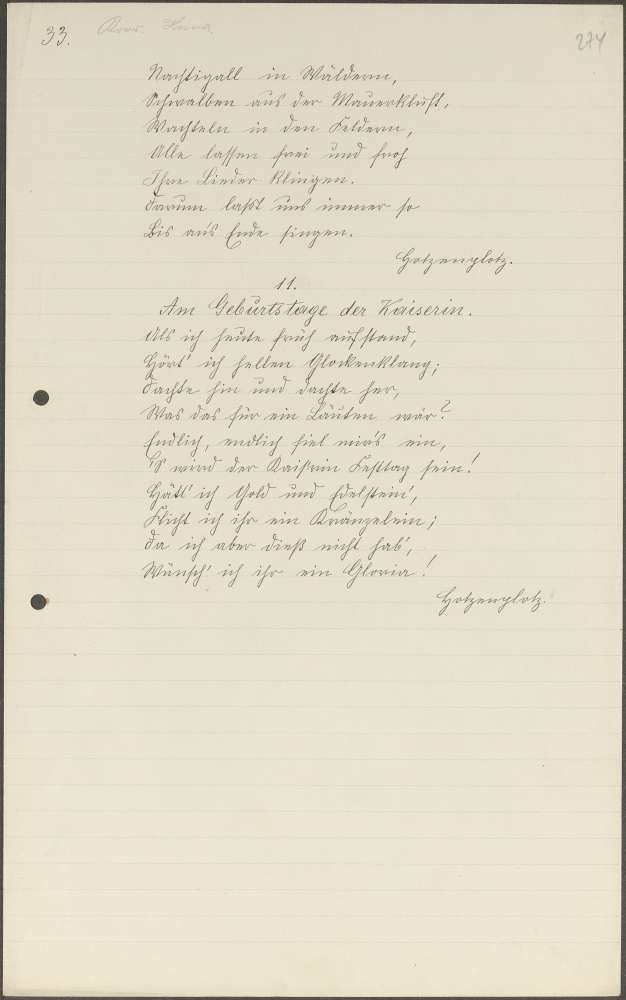 33.
274
Nachtigall in Wäldern,
Schwalben aus der Mauerkluft,
Wachteln in den Feldern,
Alle lassen frei und froh
Ihre Lieder klingen.
Darum laßt uns immer so
Bis an's Ende singen.
Hotzenplotz.
11.
Am Geburtstage der Kaiserin.
Als ich heute früh aufstand,
Hört' ich hellen Glockenklang;
Dachte hin und dachte her,
Was das für ein Läuten wär?
Endlich, endlich fiel mir's ein,
'S wird der Kais'rin Festtag sein!
Hätt' ich Gold und Edelstein',
Flicht ich ihr ein Kränzelein;
Da ich aber dieß nicht hab',
Wünsch' ich ihr ein Gloria!
Hotzenplotz.